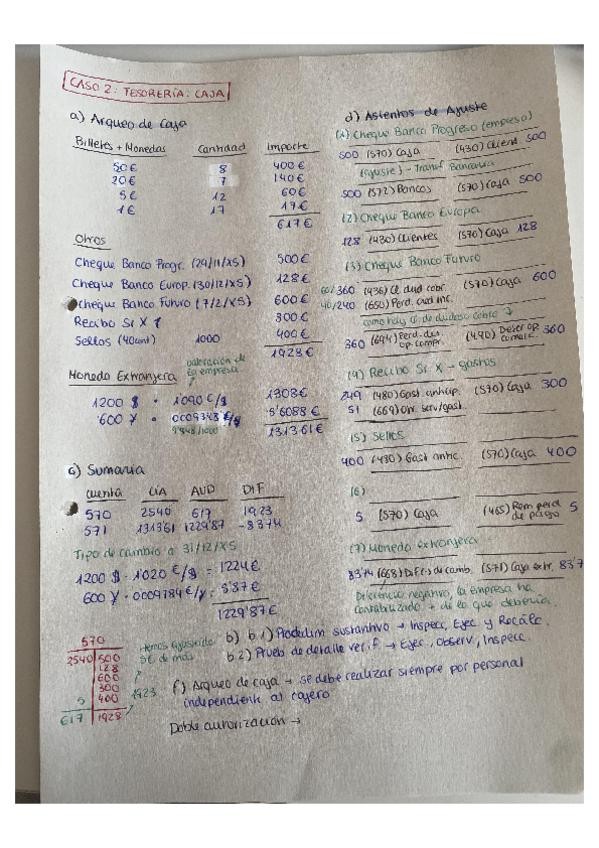 CASO 2: TESORERÍA: CAJA
a) Arqueo de Caja
Billetes + Monedas Cantidad Importe
50€ 8 400€
20€ 7 140€
5€ 12 60€
1€ 17 17€
617€
Otros
Cheque Banco Progr. (29/11/X5) 500€
Cheque Banco Europ. (30/12/X5) 128€
Cheque Banco Futuro (7/2/X5) 600€
Recibo Sr X 300€
Sellos (40cent) 1000 400€
1928€
valoración de la empresa
Moneda Extranjera
1200 $ · 1'090 €/$ 1308€
600 ¥ · 0'009343 €/$ 5'6088€
1313'61€
c) Sumaria
Cuenta CÍA AUD DIF
570 2540 617 1923
571 1313'61 1229'87 -83'74
Tipo de cambio a 31/12/X5
1200 $ · 1'020 €/$ = 1224€
600 ¥ · 0'009784 €/¥ = 5'87€
1229'87€
570
2540 500
128
600
300
5 400
617 1928
Hemos ajustado 5€ de más
1923
d) Asientos de Ajuste
(1) Cheque Banco Progreso (empresa)
500 (570) Caja (430) Client 500
(ajuste) - Transf Bancaria
500 (572) Bancos (570) Caja 500
(2) Cheque Banco Europa
128 (430) Clientes (570) Caja 128
(3) Cheque Banco Futuro
60/360 (436) Cl. dud cobr. (570) Caja 600
40/240 (650) Perd. cred inc.
como hay cl de dudoso cobro
360 (694) Perd. det. op. comerc. (490) Deter op. comerc. 360
(4) Recibo Sr X - gastos
249 (480) Gast anticip. (570) Caja 300
51 (669) otr. serv/gast.
(5) Sellos
400 (480) Gast antic. (570) Caja 400
(6)
5 (570) Caja (465) Rem pend de pago 5
(7) Moneda extranjera
83'74 (668) Dif (-) de camb. (571) Caja extr. 83'7
Diferencia negativa, la empresa ha contabilizado + de lo que debería.
b) b.1) Procedim sustantivo → Inspecc, Ejec y Recálc.
b.2) Prueba de detalle verif. → Ejec, Observ, Inspecc.
f) Arqueo de caja → se debe realizar siempre por personal
independiente al cajero
Doble autorización →